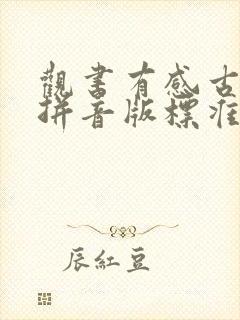 觀書有感古
拼音版標准
辰紅豆